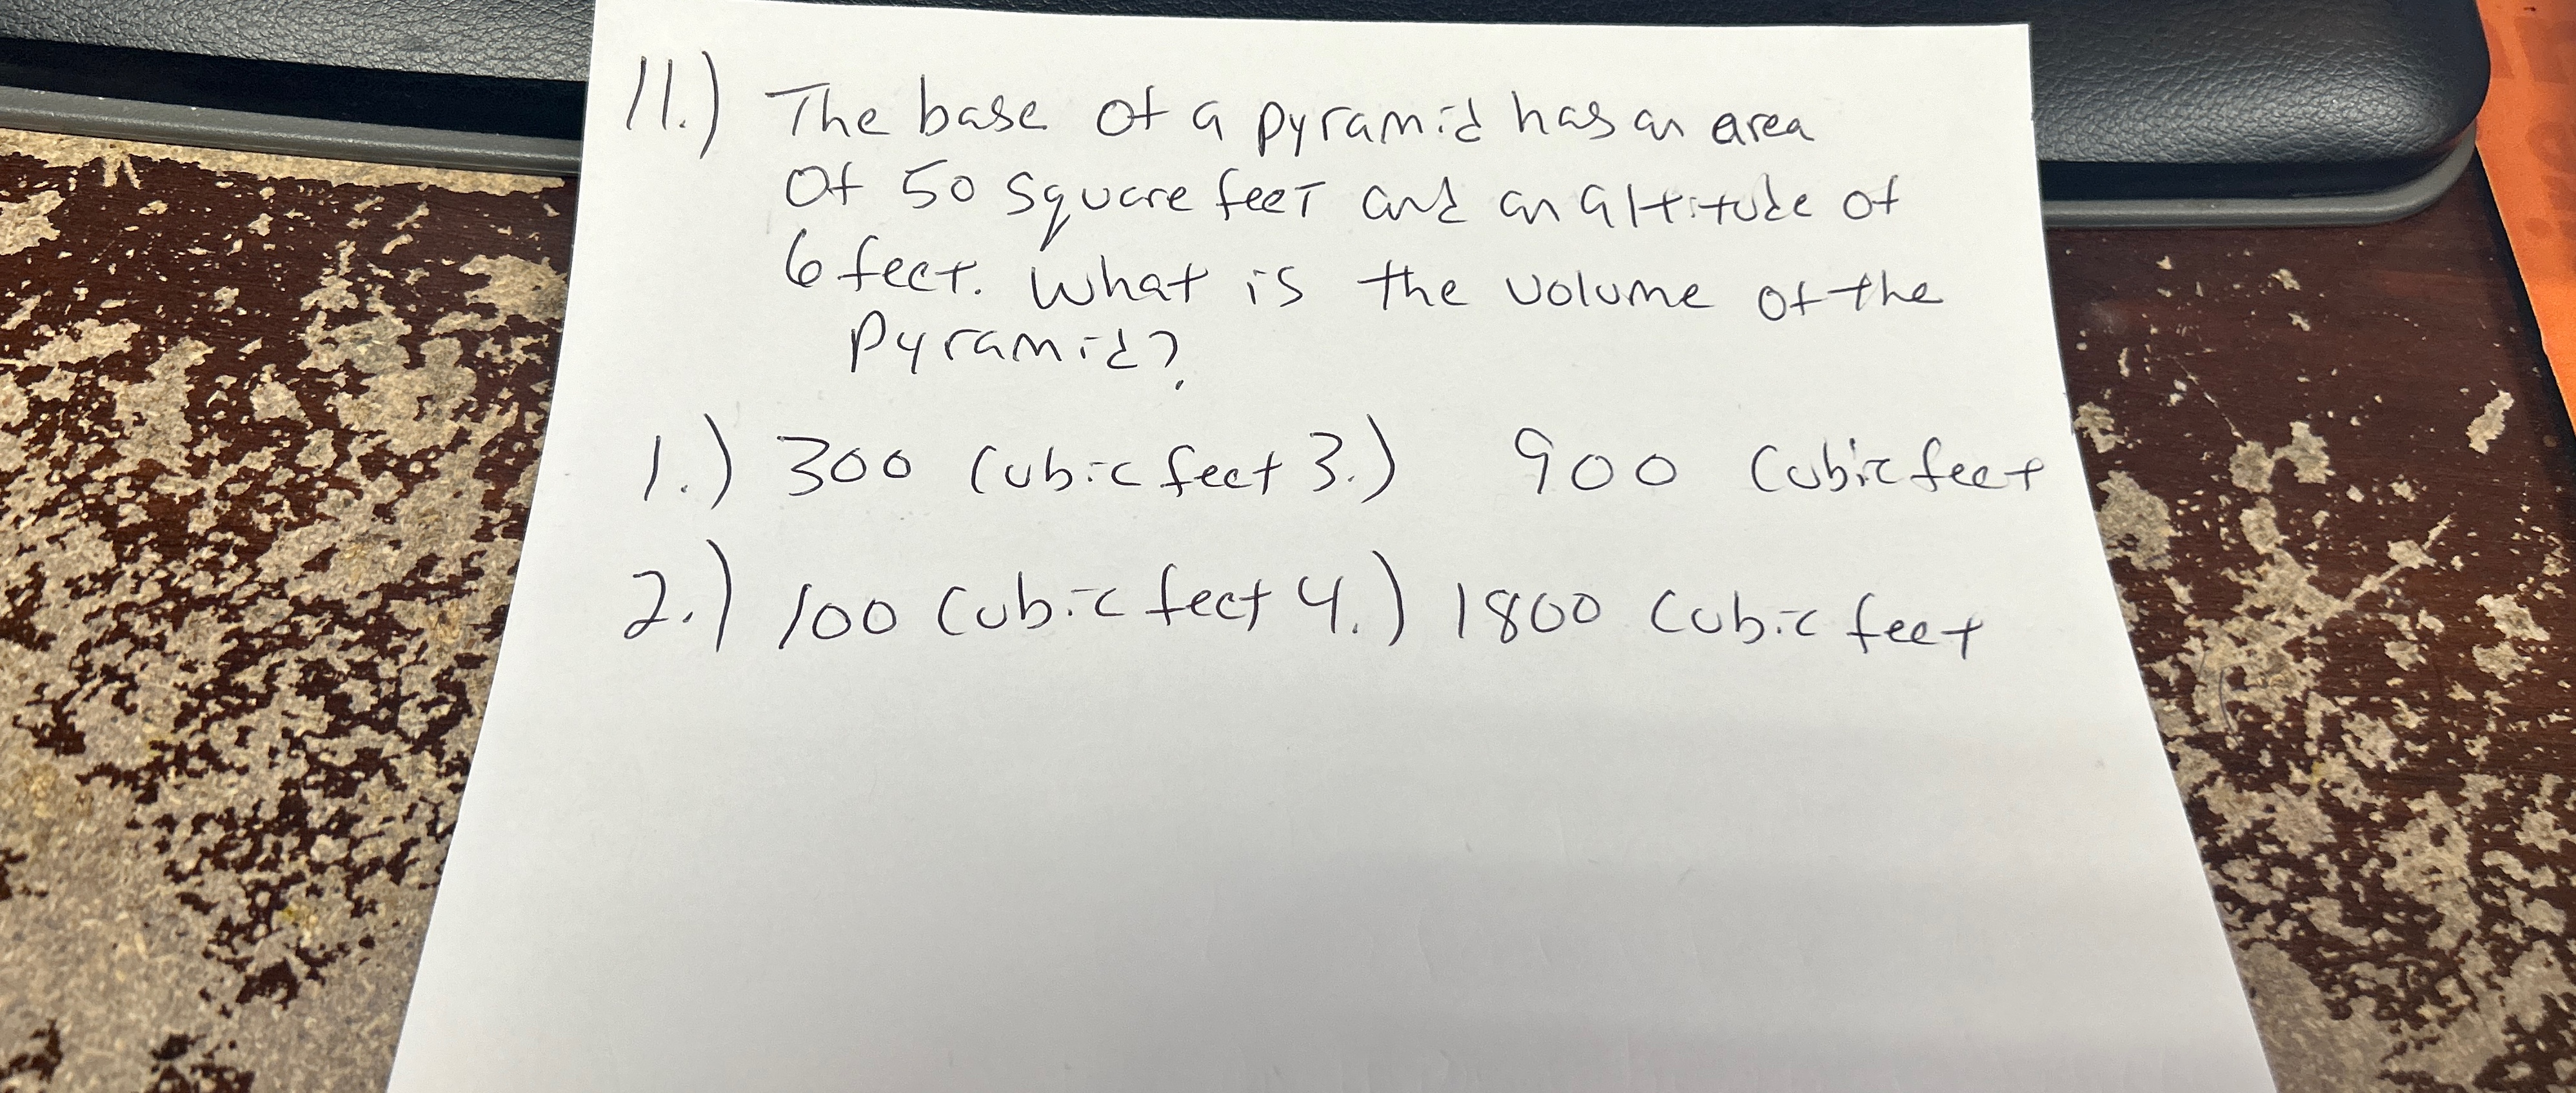 11.) The base of a pyramid has an area
of 50 square feet and an altitude of
6 feet. What is the volume of the
pyramid?
1.) 300 cubic feet 3.) 900 cubic feet
2.) 100 cubic feet 4.) 1800 cubic feet